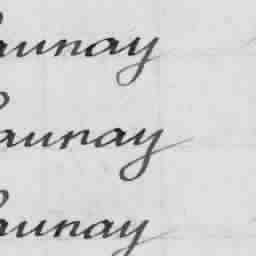 aunay
aunay
aunay